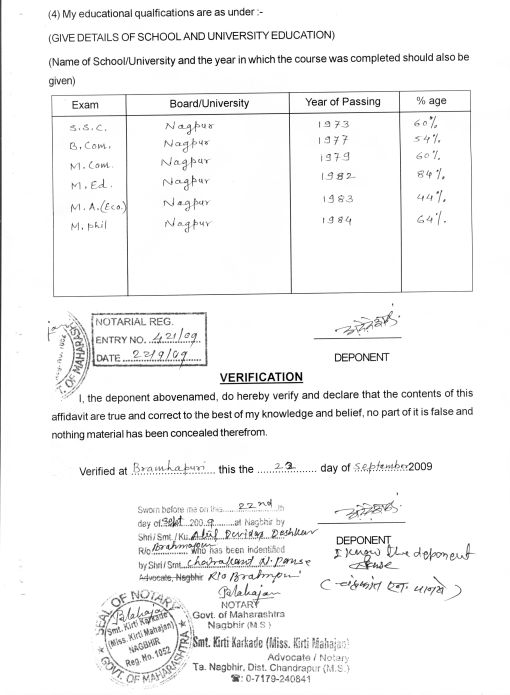 (4) My educational qualfications are as under :-
(GIVE DETAILS OF SCHOOL AND UNIVERSITY EDUCATION)
(Name of School/University and the year in which the course was completed should also be
given)
Exam Board/University Year of Passing % age
S.S.C. Nagpur 1973 60%
B.Com. Nagpur 1977 54%
M.Com. Nagpur 1979 60%
M.Ed. Nagpur 1982 84%
M.A.(Eco.) Nagpur 1983 44%
M.phil Nagpur 1984 64%
NOTARIAL REG.
ENTRY NO. 421/09
DATE 22/9/09
DEPONENT
VERIFICATION
I, the deponent abovenamed, do hereby verify and declare that the contents of this
affidavit are true and correct to the best of my knowledge and belief, no part of it is false and
nothing material has been concealed therefrom.
Verified at Bramhapuri this the 22 day of September 2009
Sworn before me on this 22nd in
day of Sept 2009 at Nagbhir by
Shri / Smt. / Ku. Atul Devidas Deshkar
R/o Brahmapuri who has been indentified
by Shri / Smt. Chandrakant N. Panse
Advocate, Nagbhir R/o Brahmpuri
DEPONENT
I know the deponent
NOTARY
Govt. of Maharashtra
Nagbhir (M.S.)
SEAL OF NOTARY
Smt. Kirti Karkade
(Miss. Kirti Mahajan)
NAGBHIR
Reg. No. 1052
GOVT. OF MAHARASHTRA
Smt. Kirti Karkade (Miss. Kirti Mahajan)
Advocate / Notary
Ta. Nagbhir, Dist. Chandrapur (M.S.)
☎: 0-7179-240841